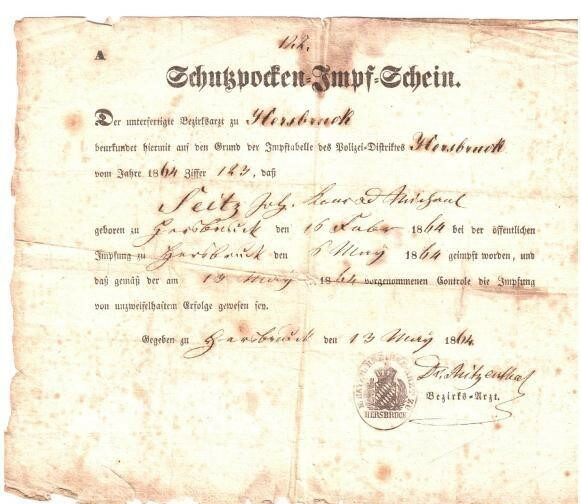 122.
A
Schutzpocken-Impf-Schein.
Der unterfertigte Bezirksarzt zu Hersbruck
beurkundet hiermit auf den Grund der Impftabelle des Polizei-Distriktes Hersbruck
vom Jahre 1864 Ziffer 123, daß
Seitz Joh. Konrad Michael
geboren zu Hersbruck den 16 Febr 1864 bei der öffentlichen
Impfung zu Hersbruck den 6 May 1864 geimpft worden, und
daß gemäß der am 13 May 1864 vorgenommenen Controle die Impfung
von unzweifelhaftem Erfolge gewesen sey.
Gegeben zu Hersbruck den 13 May 1864
Dr.
Bezirks-Arzt.
HERSBRUCK